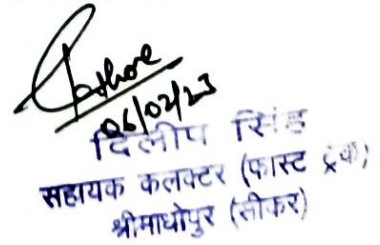 Rathore
06/02/23
दिलीप सिंह
सहायक कलक्टर (फास्ट ट्रेक)
श्रीमाधोपुर (सीकर)